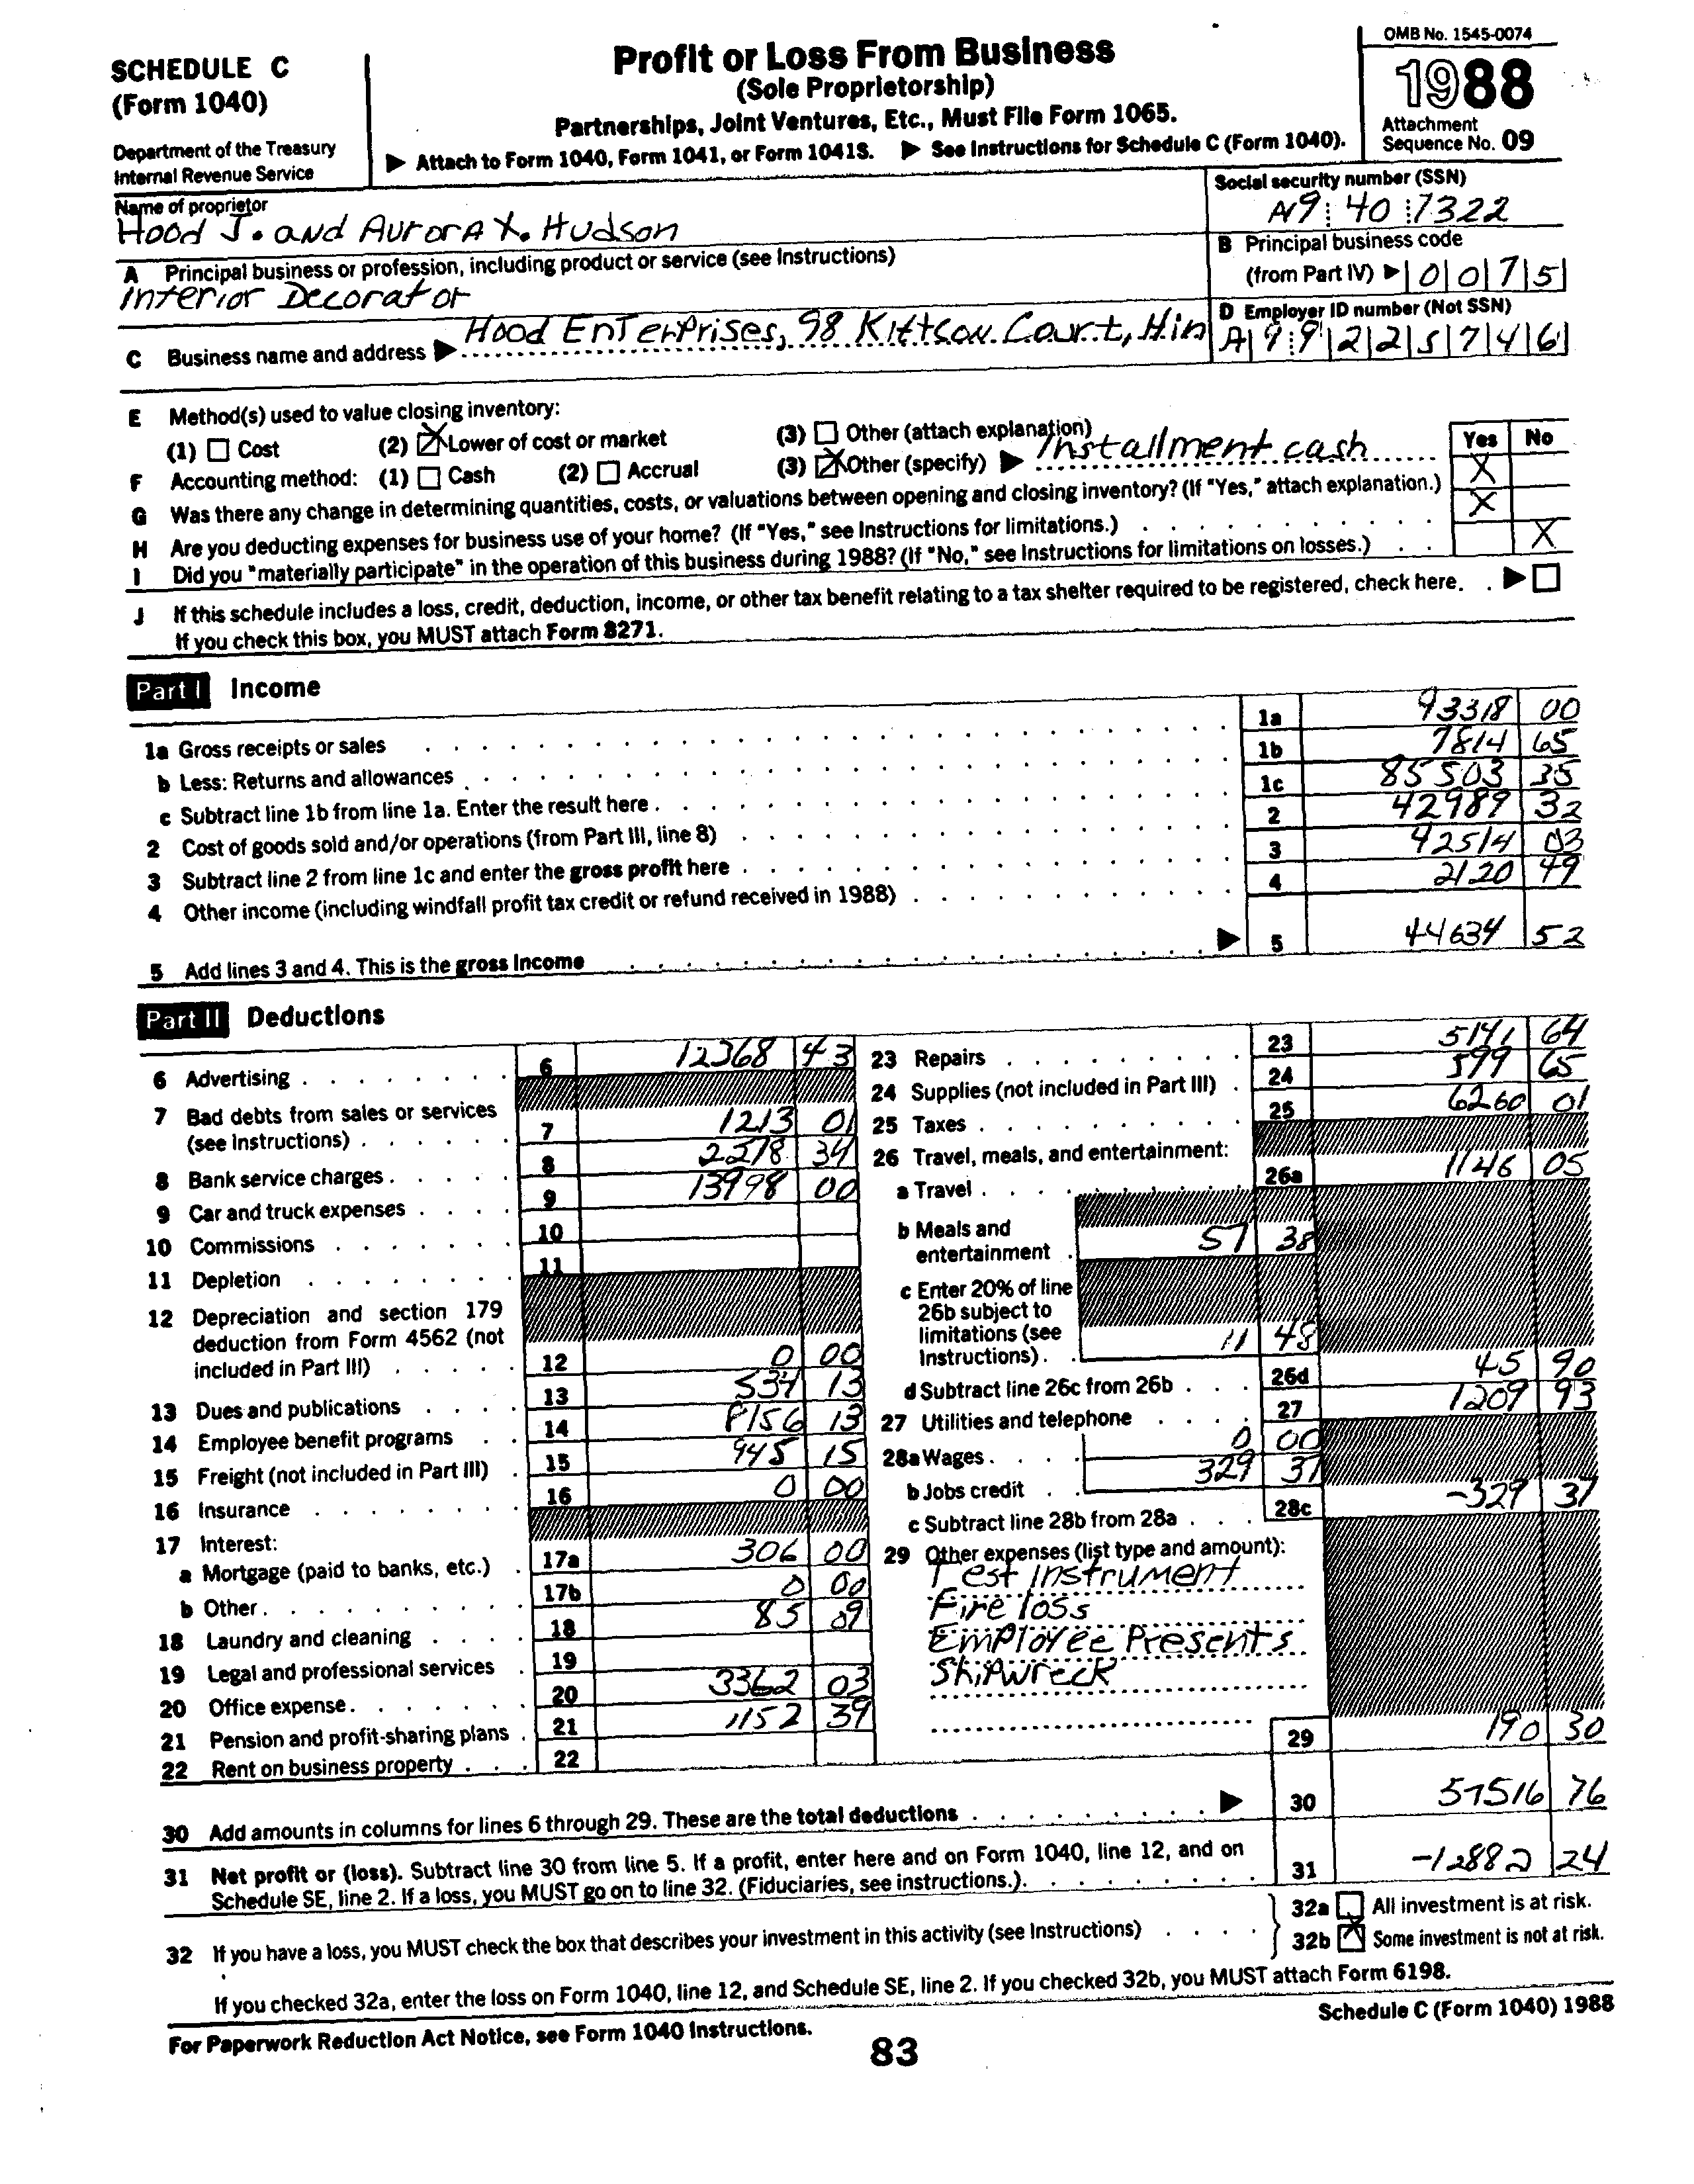 SCHEDULE C
(Form 1040)
Department of the Treasury
Internal Revenue Service
Profit or Loss From Business
(Sole Proprietorship)
Partnerships, Joint Ventures, Etc., Must File Form 1065.
▶ Attach to Form 1040, Form 1041, or Form 1041S. ▶ See Instructions for Schedule C (Form 1040).
OMB No. 1545-0074
1988
Attachment
Sequence No. 09
Name of proprietor
Hood J. and Aurora X. Hudson
Social security number (SSN)
A19 40 7322
A Principal business or profession, including product or service (see Instructions)
Interior Decorator
B Principal business code
(from Part IV) ▶ 0 0 7 5
C Business name and address ▶ Hood Enterprises, 98 Kittson Court, Hin
D Employer ID number (Not SSN)
A 9 9 2 2 5 7 4 6
E Method(s) used to value closing inventory:
(1) ☐ Cost (2) ☒ Lower of cost or market (3) ☐ Other (attach explanation)
F Accounting method: (1) ☐ Cash (2) ☐ Accrual (3) ☒ Other (specify) ▶ Installment cash
Yes No
G Was there any change in determining quantities, costs, or valuations between opening and closing inventory? (If "Yes," attach explanation.) X
H Are you deducting expenses for business use of your home? (If "Yes," see Instructions for limitations.) X
I Did you "materially participate" in the operation of this business during 1988? (If "No," see Instructions for limitations on losses.) X
J If this schedule includes a loss, credit, deduction, income, or other tax benefit relating to a tax shelter required to be registered, check here. ▶ ☐
If you check this box, you MUST attach Form 8271.
Part I Income
1a Gross receipts or sales 1a 93318 00
b Less: Returns and allowances 1b 7814 65
c Subtract line 1b from line 1a. Enter the result here 1c 85503 35
2 Cost of goods sold and/or operations (from Part III, line 8) 2 42989 32
3 Subtract line 2 from line 1c and enter the gross profit here 3 42514 03
4 Other income (including windfall profit tax credit or refund received in 1988) 4 2120 49
5 Add lines 3 and 4. This is the gross income ▶ 5 44634 52
Part II Deductions
6 Advertising 6 12368 43
7 Bad debts from sales or services
(see Instructions) 7 1213 01
8 Bank service charges 8 2578 34
9 Car and truck expenses 9 13998 00
10 Commissions 10
11 Depletion 11
12 Depreciation and section 179
deduction from Form 4562 (not
included in Part III) 12 0 00
13 Dues and publications 13 534 13
14 Employee benefit programs 14 8156 13
15 Freight (not included in Part III) 15 945 15
16 Insurance 16 0 00
17 Interest:
a Mortgage (paid to banks, etc.) 17a 306 00
b Other 17b 0 00
18 Laundry and cleaning 18 85 09
19 Legal and professional services 19
20 Office expense 20 3362 03
21 Pension and profit-sharing plans 21 1152 39
22 Rent on business property 22
23 Repairs 23 5141 64
24 Supplies (not included in Part III) 24 599 65
25 Taxes 25 6260 01
26 Travel, meals, and entertainment:
a Travel 26a 1146 05
b Meals and
entertainment 57 38
c Enter 20% of line
26b subject to
limitations (see
Instructions) 11 48
d Subtract line 26c from 26b 26d 45 90
27 Utilities and telephone 27 1209 93
28a Wages 0 00
b Jobs credit 329 37
c Subtract line 28b from 28a 28c -329 37
29 Other expenses (list type and amount):
Test instrument
Fire loss
Employee Presents
Shipwreck
29 190 30
30 Add amounts in columns for lines 6 through 29. These are the total deductions ▶ 30 57516 76
31 Net profit or (loss). Subtract line 30 from line 5. If a profit, enter here and on Form 1040, line 12, and on
Schedule SE, line 2. If a loss, you MUST go on to line 32. (Fiduciaries, see instructions.) 31 -12882 24
32 If you have a loss, you MUST check the box that describes your investment in this activity (see Instructions)
32a ☐ All investment is at risk.
32b ☒ Some investment is not at risk.
If you checked 32a, enter the loss on Form 1040, line 12, and Schedule SE, line 2. If you checked 32b, you MUST attach Form 6198.
For Paperwork Reduction Act Notice, see Form 1040 Instructions.
Schedule C (Form 1040) 1988
83